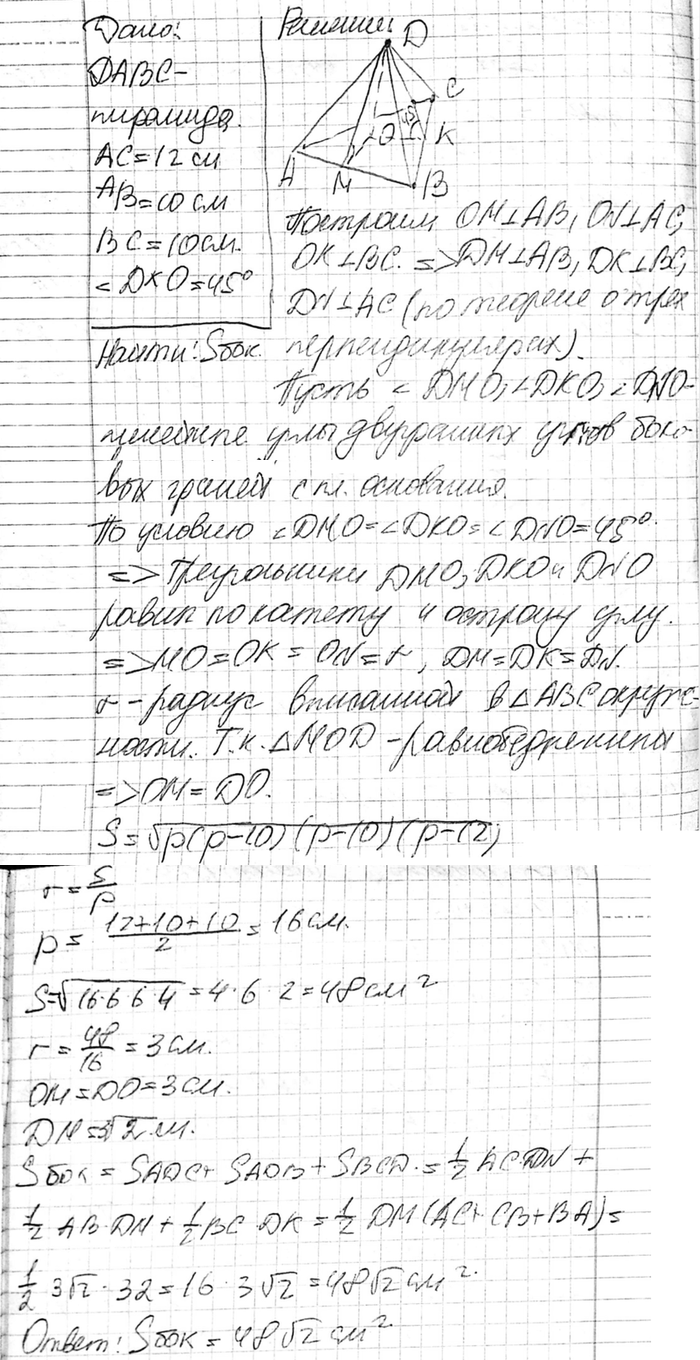 Дано:
DABC-
пирамида.
AC=12 см
AB=10 см
BC=10см.
∠DKO=45°
Найти: Sбок.
Решение:
D
C
45
O
K
A
M
B
Построим OM⊥AB, ON⊥AC,
OK⊥BC. => DM⊥AB, DK⊥BC,
DN⊥AC (по теореме о трех
перпендикулярах).
Пусть ∠DMO, ∠DKO, ∠DNO-
линейные углы двугранных углов боко-
вых граней с пл. основания.
По условию ∠DMO=∠DKO=∠DNO=45°.
=> Треугольники DMO, DKO и DNO
равны по катету и острому углу.
=> MO=OK=ON=r, DM=DK=DN.
r-радиус вписанной в △ABC окруж-
ности. Т.к. △MOD-равнобедренный
=> OM=DO.
S=√p(p-10)(p-10)(p-12)
r=S/p
p=(12+10+10)/2=16см.
S=√16·6·6·4=4·6·2=48см²
r=48/16=3см.
OM=DO=3см.
DM=3√2см.
Sбок=SADC+SADB+SBCD=1/2 AC·DN+
1/2 AB·DM+1/2 BC·DK=1/2 DM(AC+CB+BA)=
1/2 3√2·32=16·3√2=48√2 см².
Ответ: Sбок=48√2 см²